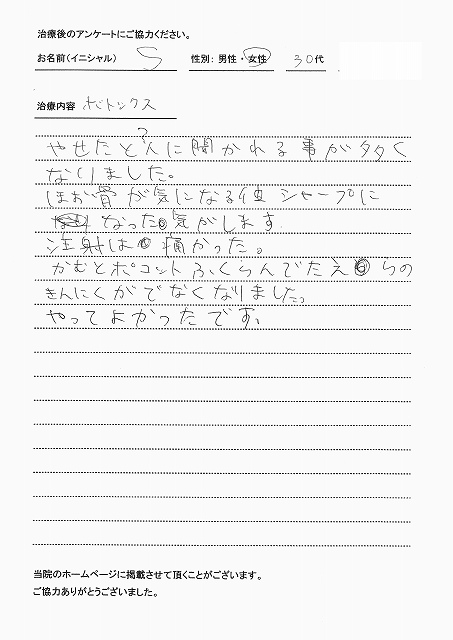 治療後のアンケートにご協力ください。
お名前(イニシャル) S 性別: 男性・女性 30代
治療内容 ボトックス
やせたと?人に聞かれる事が多く
なりました。
ほお骨が気になる位シャープに
なった気がします
注射は痛かった。
かむとポコットふくらんでたえらの
きんにくがでなくなりました。
やってよかったです。
当院のホームページに掲載させて頂くことがございます。
ご協力ありがとうございました。